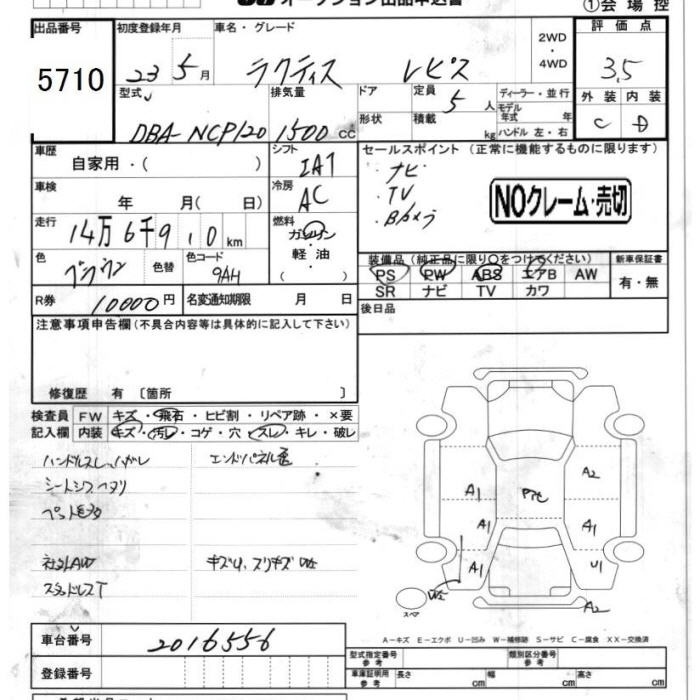 オークション出品申込書
①会場控
出品番号 初度登録年月 車名・グレード 評価点
5710 23 5月 ラクティス レピス 2WD・4WD 3.5
型式 排気量 ドア 定員 5人 ディーラー・並行 外装 内装
DBA-NCP120 1500cc 形状 積載 kg モデル年式 年 ハンドル 左・右 C D
車歴 自家用・( ) シフト IAT セールスポイント (正常に機能するものに限ります)
車検 年 月( 日) 冷房 AC ・ナビ
・TV
・Bカメラ
NOクレーム・売切
走行 14万6千9 0km 燃料 ガソリン・軽油・( )
装備品 (純正品に限り○をつけてください) 新車保証書
色 色替 色コード 9AH PS PW ABS エアB AW 有・無
SR ナビ TV カワ
R券 10000円 名変通知期限 月 日 後日品
注意事項申告欄(不具合内容等は具体的に記入して下さい)
修復歴 有 〔箇所 〕
検査員記入欄 FW キズ・飛石・ヒビ割・リペア跡・×要
内装 キズ・汚レ・コゲ・穴・スレ・キレ・破レ
ハンドルスレ、ハガレ エンドパネル歪
シートシワ ヘタリ
社外AW キズU、スリキズ W2
スタッドレスT
A1 A2
A1 A1
A1 U1
W2 A2
スペア
A-キズ E-エクボ U-凹み W-補修跡 S-サビ C-腐食 XX-交換済
車台番号 2016556 型式指定番号 参考 類別区分番号 参考
登録番号 車庫証明用 参考 長さ cm 幅 cm 高さ cm